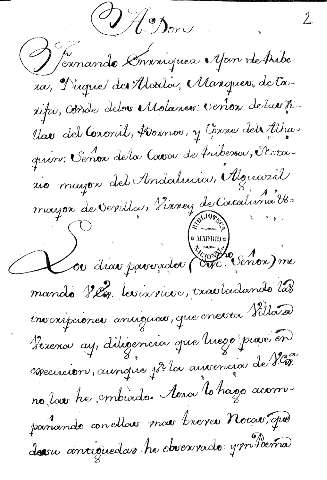 2
A Don
Fernando Enrriquez Afan de Ribe
ra, Duque de Alcala, Marques de Ta
rifa, Conde de los Molares: Señor de las Vi
llas del Coronil, Bornos, y Torre del Alha
quin: Señor de la Casa de Ribera,
rio mayor del Andalucia, Alguazil
mayor de Sevilla, Virrey de Cataluña
BIBLIOTECA
MADRID
NACIONAL
Los dias pasados (Exc.mo Señor) me
mando V.E. le sirviese, trasladando las
inscripciones antiguas, que en esta Villa de
Utrera ay, diligencia que luego puse en
execucion, aunque por la ausencia de V.E.
no, las he embiado. Aora lo hago acom
pañando con ellas mas tres o Notas, que
de su antiguedad he observado: y un Poema